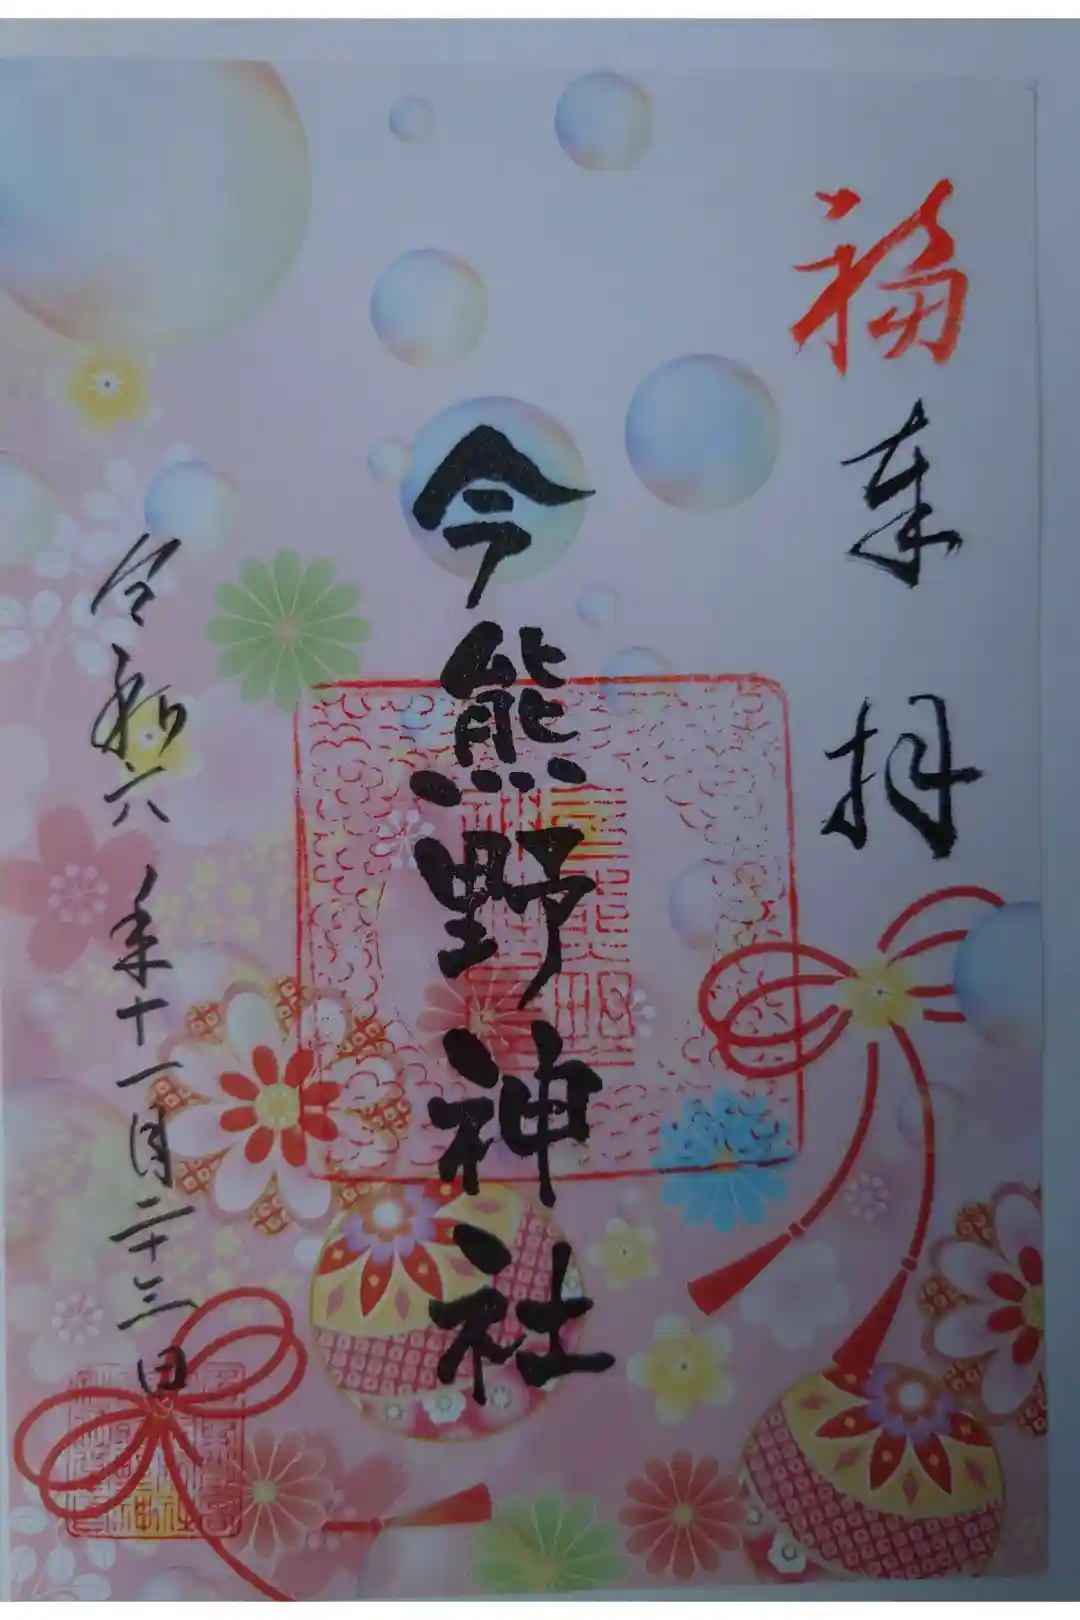 福
奉拝
今熊野神社
令和六年十一月二十三日